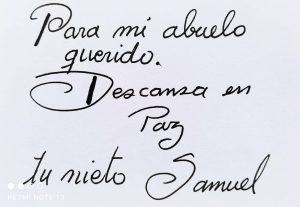 Para mi abuelo
querido.
Descanza en
Paz
tu nieto Samuel
REDMI NOTE 13